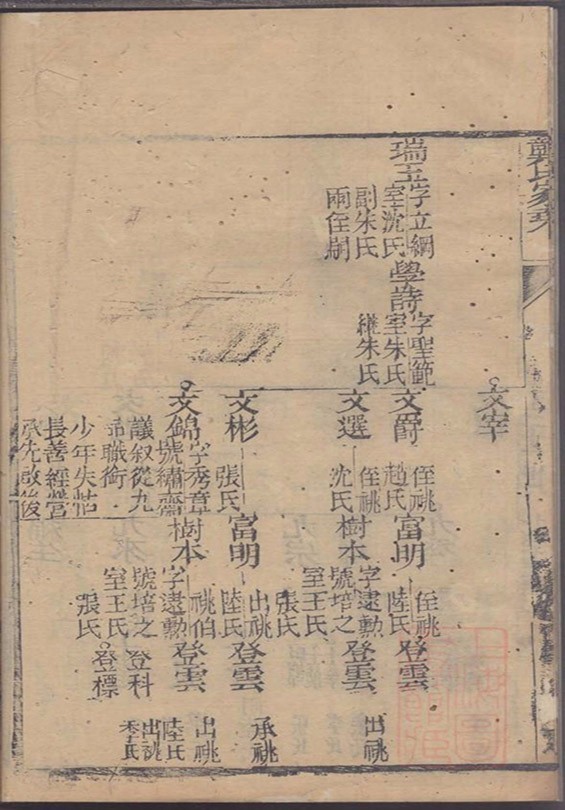 龔氏家乘
文宰
瑞玉
字立綱
室沈氏
副朱氏
兩侄嗣
學詩
字聖範
室朱氏
繼朱氏
文爵
侄祧
趙氏
富明
侄祧
陸氏
登雲
文選
侄祧
沈氏
樹本
字遠勳
號培之
室王氏
張氏
登雲
出祧
文彬
張氏
富明
出祧
陸氏
登雲
承祧
文錦
字秀章
號繡齋
議叙從九
品職銜
少年失怙
長善經營
承先啟後
樹本
祧伯
字遠勳
號培之
室王氏
張氏
登雲
出祧
陸氏
登科
出祧
登標
李氏